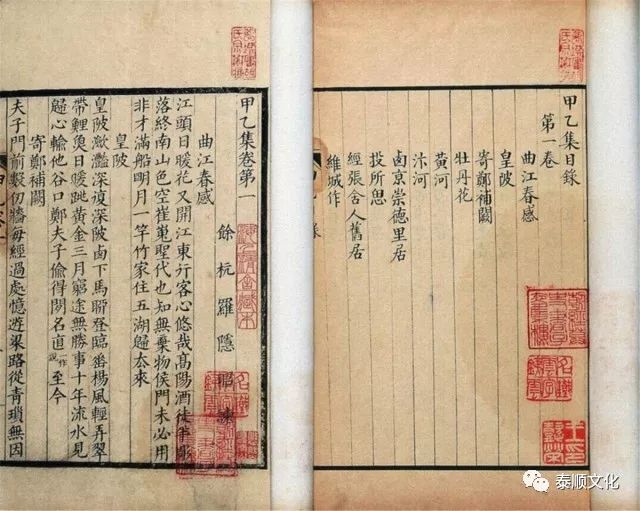 甲乙集目錄
第一卷
曲江春感
皇陂
寄鄭補闕
牡丹花
黃河
汴河
西京崇德里居
投所思
經張舍人舊居
維城作
甲乙集卷第一
餘杭羅隱昭諫
曲江春感
江頭日暖花又開江東行客心悠哉高陽酒徒半彫
落終南山色空崔嵬聖代也知無棄物侯門未必用
非才滿船明月一竿竹家住五湖歸去來
皇陂
皇陂瀲灩深復深陂西下馬聊登臨垂楊風輕弄翠
帶鯉魚日暖跳黃金三月窮途無勝事十年流水見
歸心輸他谷口鄭夫子偷得閑名直一作說至今
寄鄭補闕
夫子門前數仞牆每經過處憶遊梁路從青瑣無因
泰顺文化